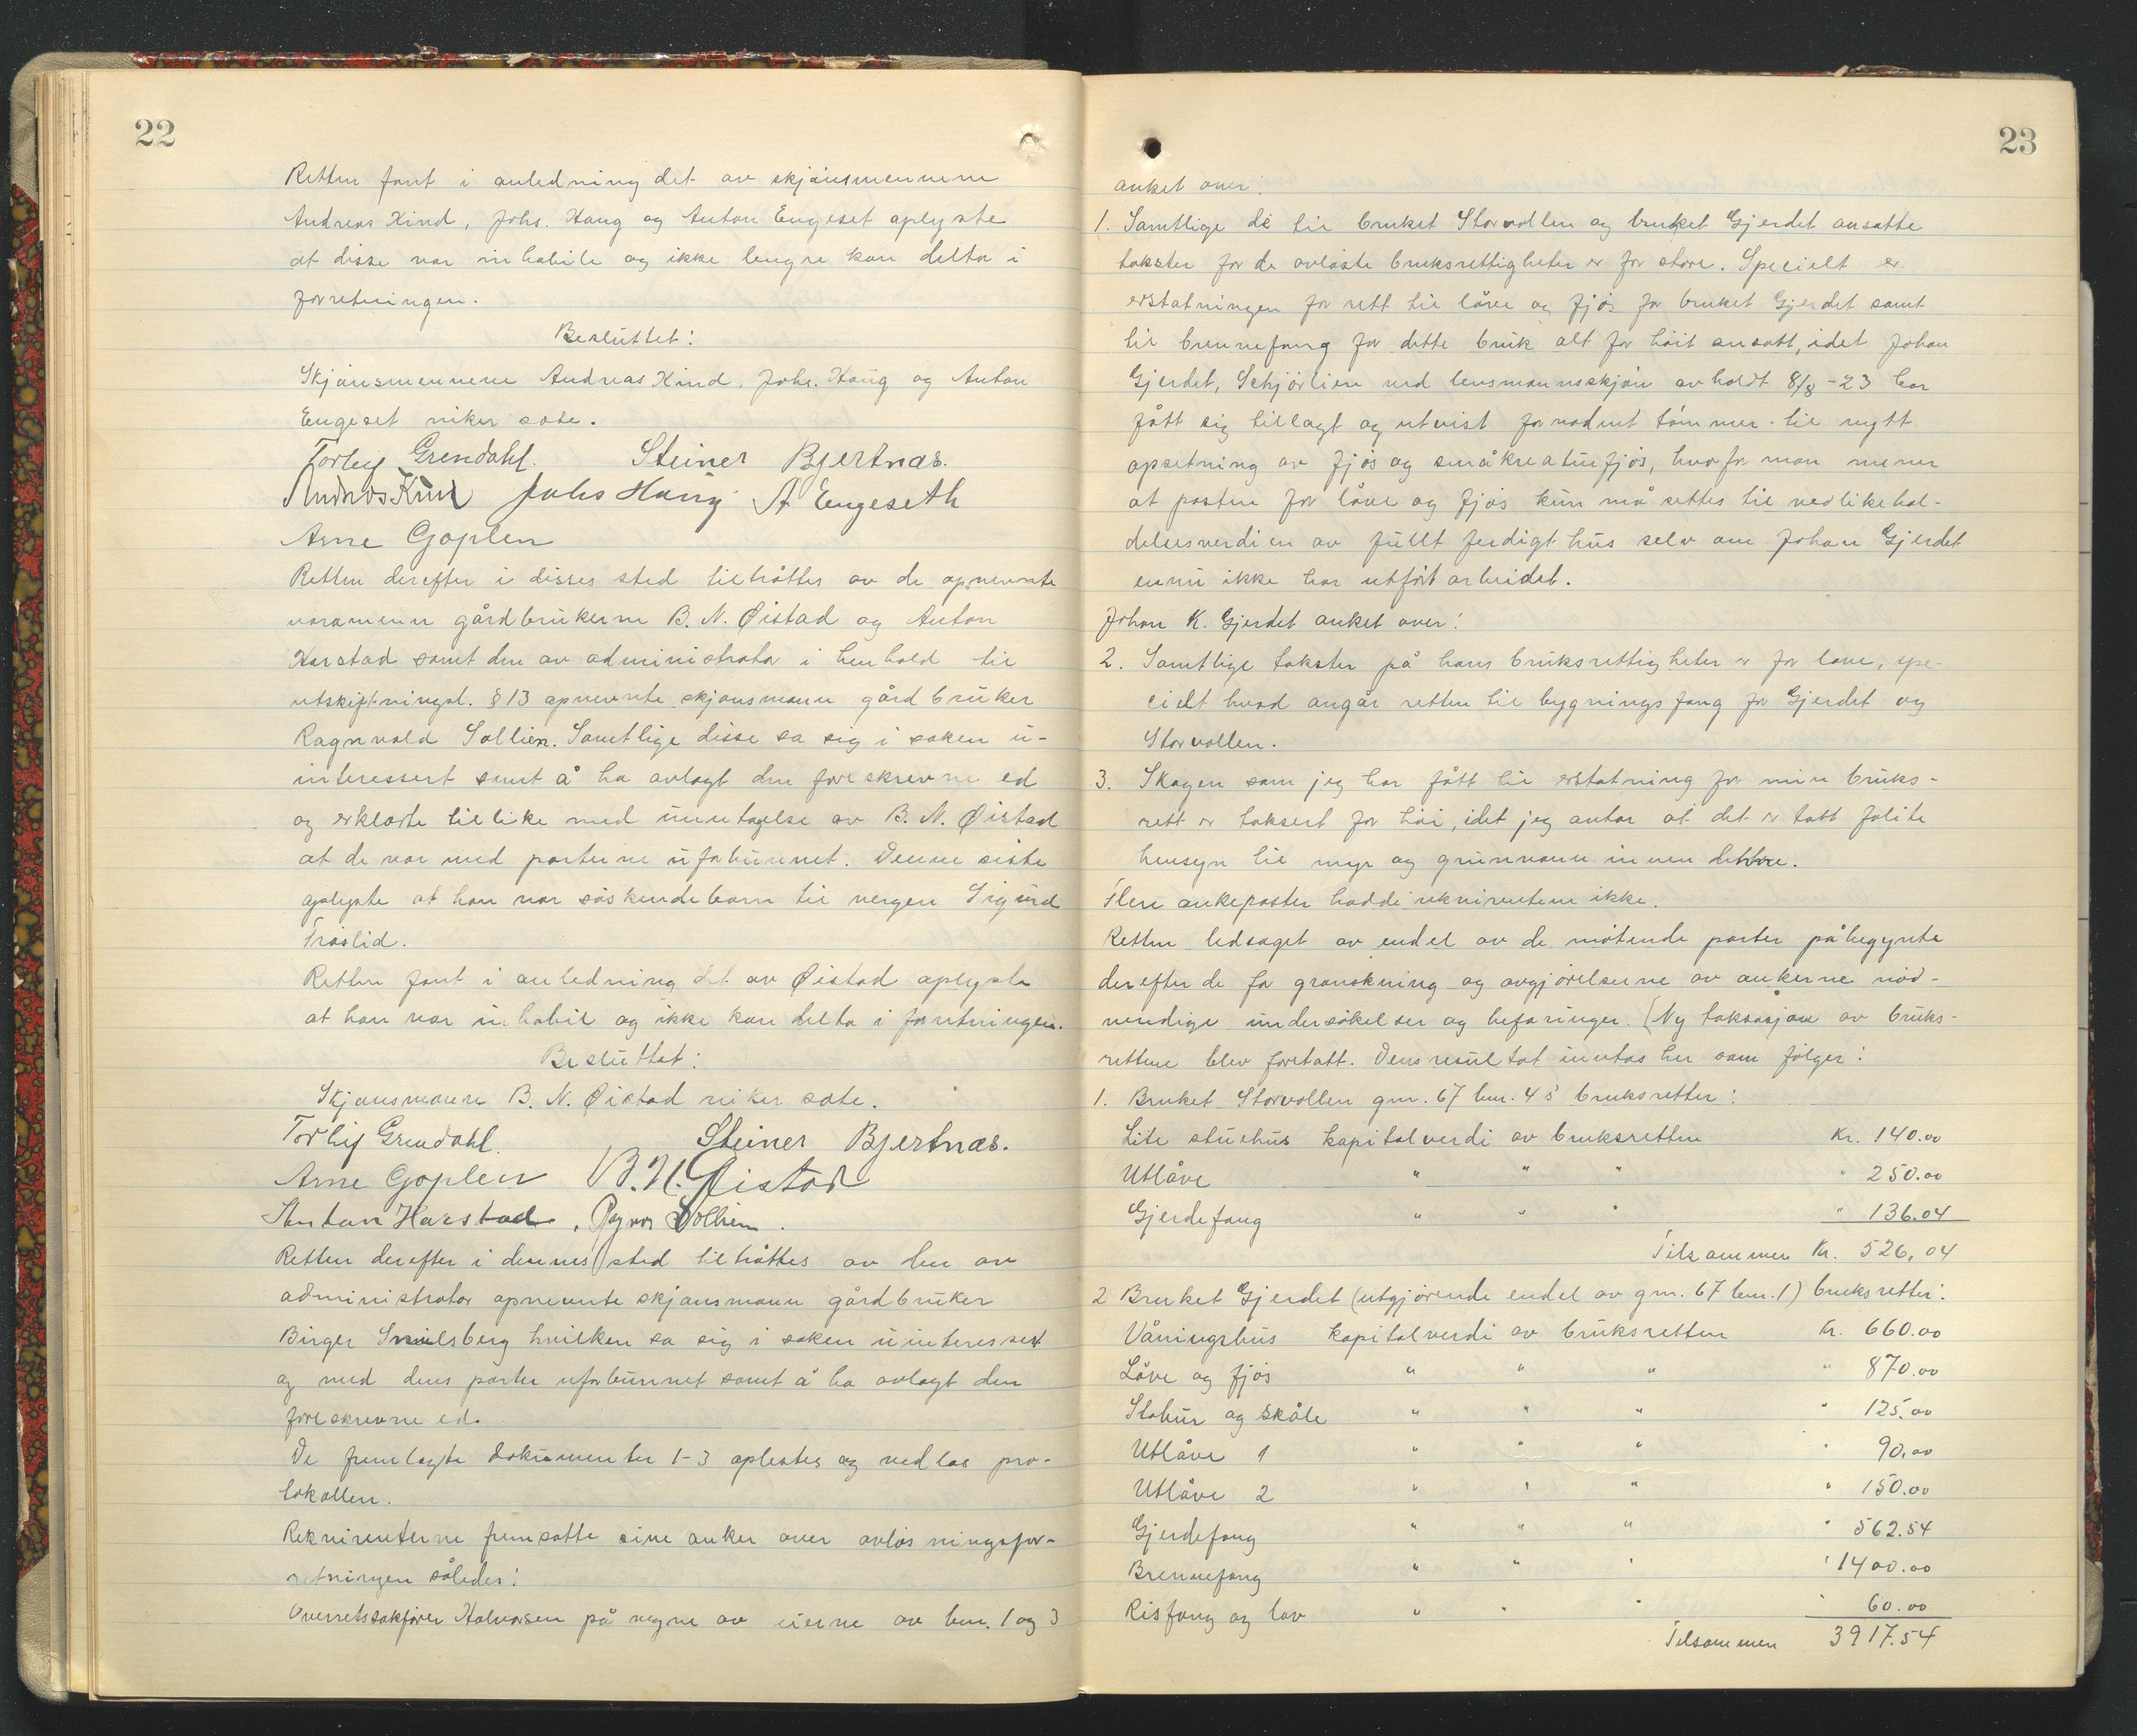 22
Retten fant i anledning det av skjønsmennene
Andreas Kind, Johs. Haug og Anton Engeset oplyste
at disse var inhabile og ikke lengre kan delta i
forretningen.
Besluttet:
Skjønsmennene Andreas Kind, Johs. Haug og Anton
Engeset viker sæte.
Torleif Grendahl. Steiner Bjertnæs.
Andreas Kind Johs Haug A Engeseth
Arne Goplen
Retten derefter i disses sted tiltråttes av de opnevnte
varamenn gårdbrukerne B. N. Øistad og Anton
Harstad samt den av administrator i henhold til
utskiftningsl. §13 opnevnte skjønsmann gårdbruker
Ragnvald Sollien. Samtlige disse sa sig i saken u-
interessert samt å ha avlagt den foreskrevne ed
og erklærte tillike med unntagelse av B. N. Øistad
at de var med parterne uforbunnet. Denne siste
oplyste at han var søskendebarn til vergen Sigurd
Trøslid.
Retten fant i anledning det av Øistad oplyste
at han var inhabil og ikke kan delta i forretningen.
Besluttet:
Skjønsmann B. N. Øistad viker sæte.
Torleif Grendahl. Steiner Bjertnæs.
Arne Goplen B. N. Øistad
Anton Harstad. Ragnv Sollien.
Retten derefter i dennes sted tiltråttes av den av
administrator opnevnte skjønsmann gårdbruker
Birger hvilken sa sig i saken uinteressert
og med dens parter uforbunnet samt å ha avlagt den
foreskrevne ed.
De fremlagte dokumenter 1-3 oplestes og vedlas pro-
tokollen.
Rekvirenterne fremsatte sine anker over avløsningsfor-
retningen således:
Overretssakfører Halvorsen på vegne av eierne av bnr. 1 og 3
23
anket over:
1. Samtlige de til bruket Storvollen og bruket Gjerdet ansatte
takster for de avløste bruksrettigheter er for store. Specielt er
erstatningen for rett til låve og fjøs for bruket Gjerdet samt
til brennefang for dette bruk alt for høit ansatt, idet Johan
Gjerdet, ved lensmannsskjøn avholdt 8/8-23 har
fått sig tillagt og utvist fornødent tømmer til nytt
opsetning av fjøs og småkreaturfjøs, hvorfor man mener
at posten for låve og fjøs kun må settes til vedlikehol-
delsesverdien av fullt ferdigt hus selv om Johan Gjerdet
ennu ikke har utført arbeidet.
Johan K. Gjerdet anket over:
2. Samtlige takster på hans bruksrettigheter er for lave, spe-
cielt hvad angår retten til bygningsfang for Gjerdet og
Storvollen.
3. Skogen som jeg har fått til erstatning for min bruks-
rett er taksert for høi, idet jeg antar at det er tatt for lite
hensyn til myr og grunnvann innen dette.
Flere ankeposter hadde rekvirentene ikke.
Retten ledsaget av endel av de møtende parter påbegynte
derefter de for granskning og avgjørelserne av ankerne nød-
vendige undersøkelser og befaringer. (Ny taksasjon av bruks-
rettene blev foretatt. Dens resultat inntas her som følger:
1. Bruket Storvollen gnr. 67 bnr. 4's bruksretter:
Lite stuehus kapitalverdi av bruksretten Kr. 140.00
Utlåve " " " " 250.00
Gjerdefang " " " " 136.04
Tilsammen Kr. 526,04
2 Bruket Gjerdet (utgjørende endel av gnr. 67 bnr. 1) bruksretter:
Våningshus kapitalverdi av bruksretten Kr. 660.00
Låve og fjøs " " " " 870.00
Stabur og skåle " " " " 125.00
Utlåve 1 " " " " 90.00
Utlåve 2 " " " " 150.00
Gjerdefang " " " " 562.54
Brennefang " " " " 1400.00
Risfang og lav " " " " 60.00
Tilsammen 3917.54